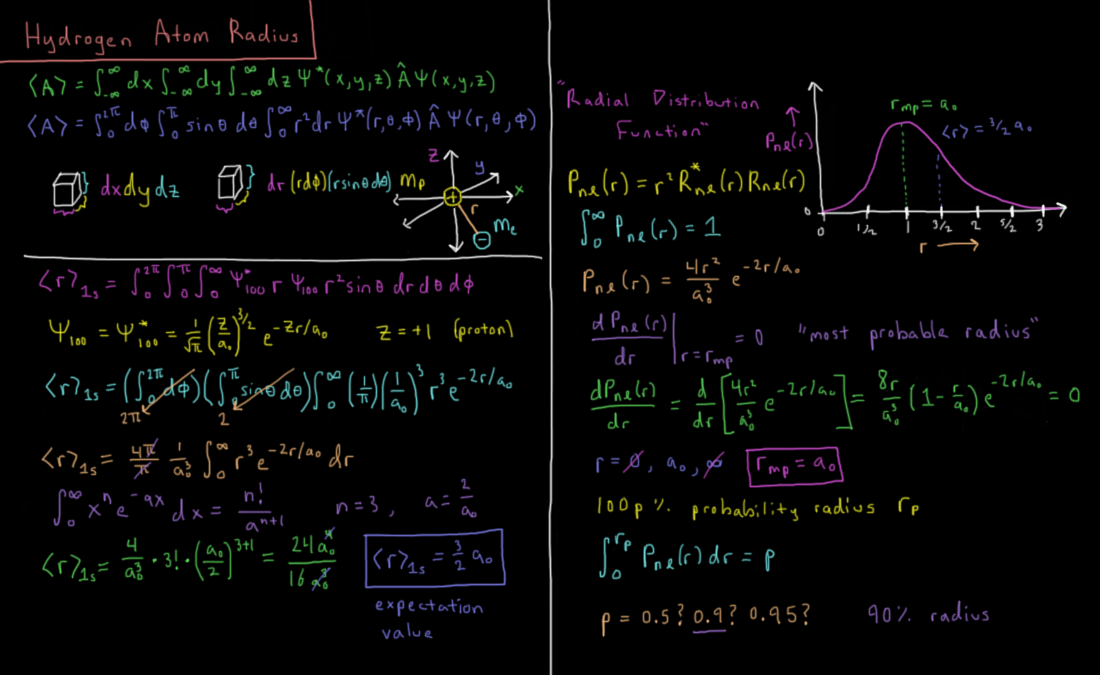 Hydrogen Atom Radius
⟨A⟩ = ∫_{-∞}^{∞} dx ∫_{-∞}^{∞} dy ∫_{-∞}^{∞} dz Ψ*(x,y,z) Â Ψ(x,y,z)
⟨A⟩ = ∫_0^{2π} dϕ ∫_0^π sinθ dθ ∫_0^∞ r² dr Ψ*(r,θ,ϕ) Â Ψ(r,θ,ϕ)
dxdydz
dr (rdϕ)(rsinθdθ)
z
y
x
m_p
+
r
m_e
−
⟨r⟩_{1s} = ∫_0^{2π} ∫_0^π ∫_0^∞ Ψ*_{100} r Ψ_{100} r² sinθ dr dθ dϕ
Ψ_{100} = Ψ*_{100} = 1/√π (Z/a₀)^{3/2} e^{-Zr/a₀} Z = +1 (proton)
⟨r⟩_{1s} = (∫_0^{2π} dϕ)(∫_0^π sinθ dθ) ∫_0^∞ (1/π)(1/a₀)³ r³ e^{-2r/a₀}
2π 2
⟨r⟩_{1s} = 4π/π 1/a₀³ ∫_0^∞ r³ e^{-2r/a₀} dr
∫_0^∞ xⁿ e^{-ax} dx = n!/a^{n+1} n = 3, a = 2/a₀
⟨r⟩_{1s} = 4/a₀³ · 3! · (a₀/2)^{3+1} = 24 a₀⁴/16 a₀³ ⟨r⟩_{1s} = 3/2 a₀
expectation
value
"Radial Distribution
Function"
↑
P_{nℓ}(r)
r_{mp} = a₀
⟨r⟩ = 3/2 a₀
0
0 1/2 1 3/2 2 5/2 3
r →
P_{nℓ}(r) = r² R*_{nℓ}(r) R_{nℓ}(r)
∫_0^∞ P_{nℓ}(r) = 1
P_{nℓ}(r) = 4r²/a₀³ e^{-2r/a₀}
dP_{nℓ}(r)/dr |_{r=r_{mp}} = 0 "most probable radius"
dP_{nℓ}(r)/dr = d/dr [4r²/a₀³ e^{-2r/a₀}] = 8r/a₀³ (1 - r/a₀) e^{-2r/a₀} = 0
r = 0, a₀, ∞ r_{mp} = a₀
100p % probability radius r_p
∫_0^{r_p} P_{nℓ}(r) dr = p
p = 0.5? 0.9? 0.95? 90% radius